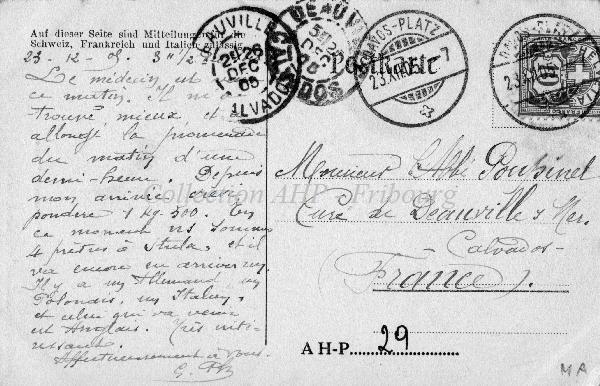 Auf dieser Seite sind Mitteilungen für die
Schweiz, Frankreich und Italien zulässig.
23-12-05.
Le médecin est
ce matin. Il m'
trouvé mieux, et
allongé la promenade
du matin d'une
demi-heure. Depuis
mon arrivée
1 Kg-500. En
ce moment ns sommes
4 prêtres à et il
va encore en arriver un.
Il y a un Allemand, un
Polonais, un Italien,
et celui qui va venir
est Anglais. Très inté-
ressant.
Affectueusement à vous.
DEAUVILLE
CALVADOS
DEC
05
DEAUVILLE
CALVADOS
DEC
05
Postkarte
DAVOS-PLATZ
23.XII.05.-7
DAVOS-PLATZ
HELVETIA
10
Monsieur l'Abbé Poubinel
Curé de Deauville s/ Mer.
Calvados
(France).
Collection AHP - Fribourg
AH-P. 29
MA